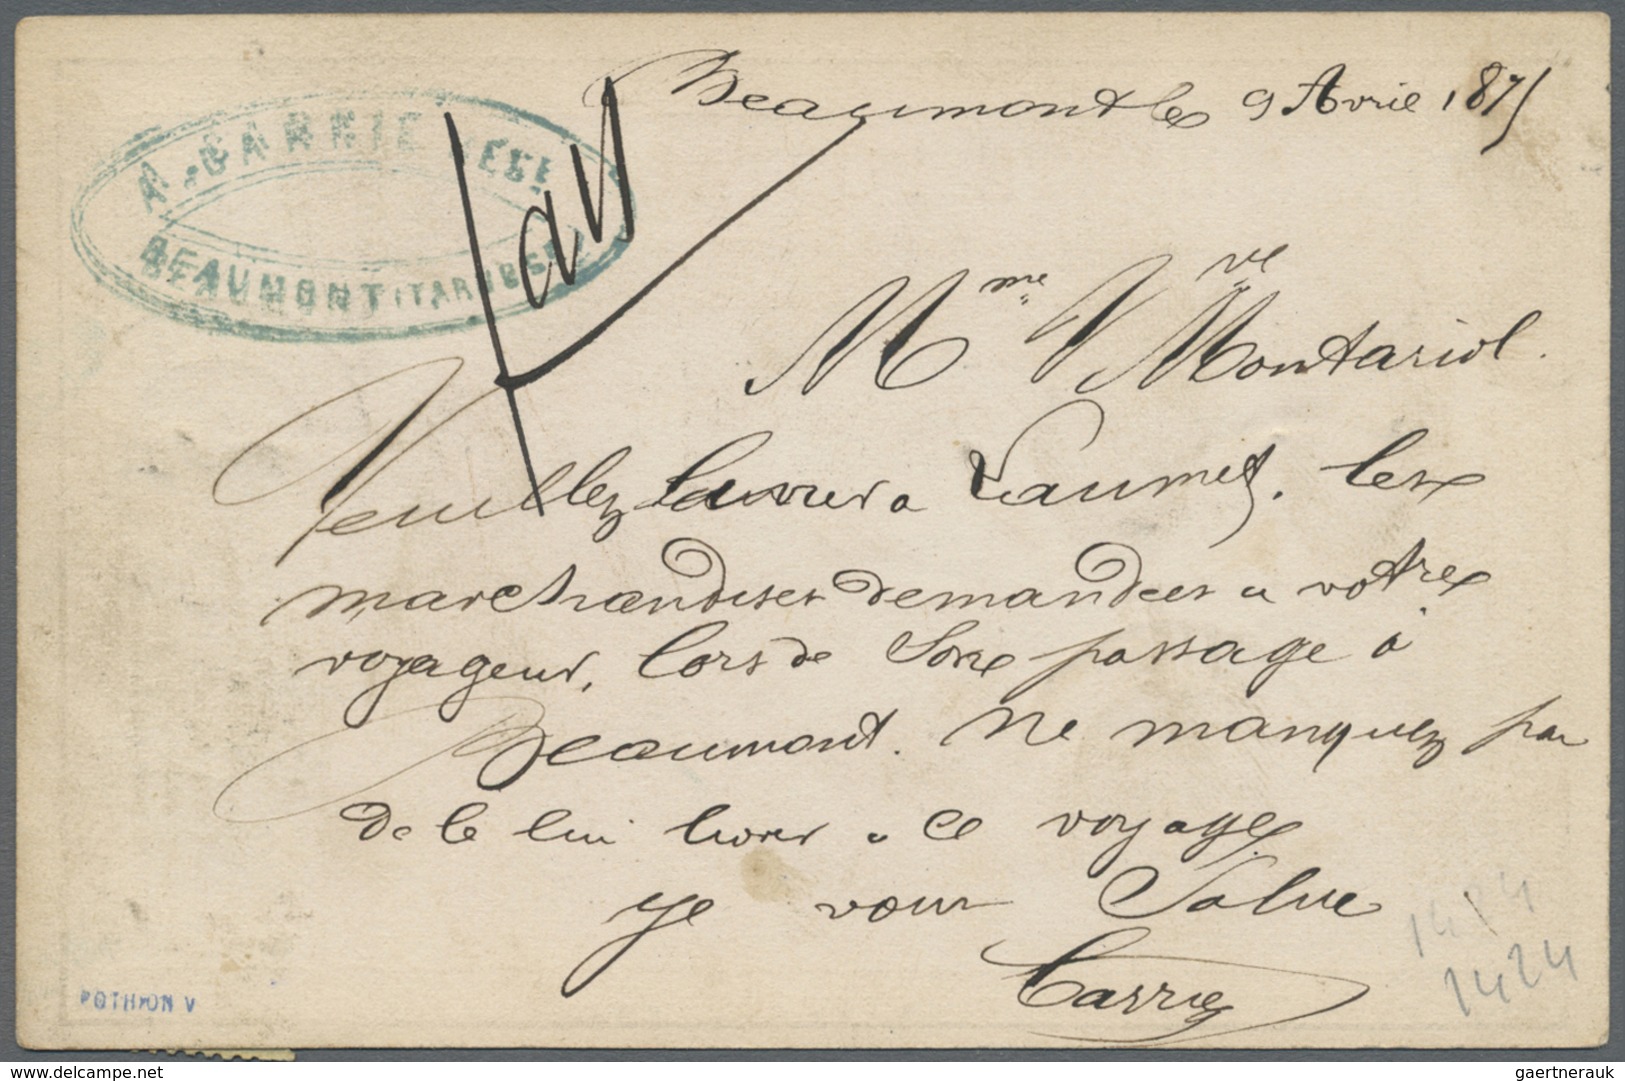 Beaumont le 9 Avril 1875
A. CARRIE
BEAUMONT (TARN
Mme Vve Montariol.
Veuillez livrer a Laumet. les
marchandises demandées a votre
voyageur, lors de son passage à
Beaumont. Ne manquez pas
de le lui livrer a ce voyage
je vous salue
Carrie
POTHION V
1424
delcampe.net
gaertnerauk